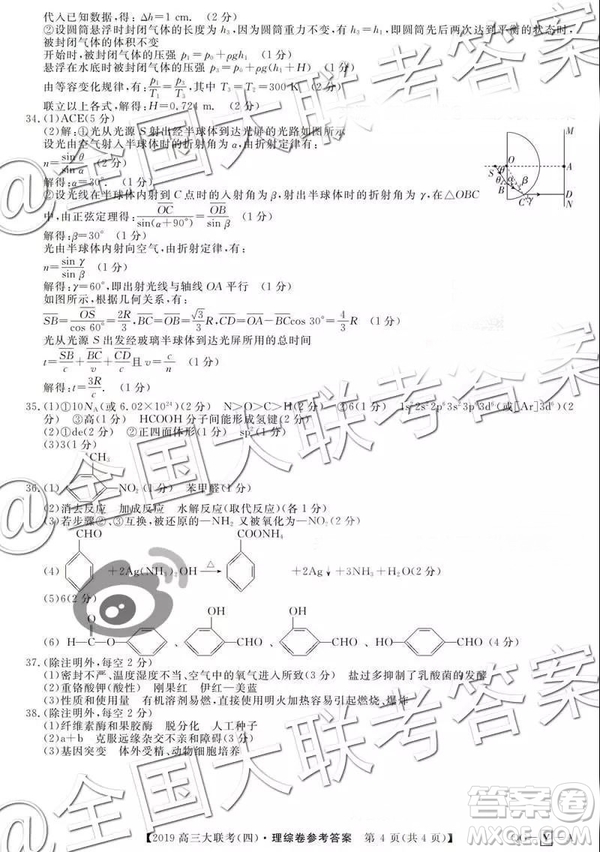 代入已知数据,得:Δh=1 cm. (2分)
②设圆筒悬浮时封闭气体的长度为 h₃,因为圆筒重力不变,有 h₃=h₁,即圆筒先后两次达到平衡的状态时,
被封闭气体的体积不变
开始时,被封闭气体的压强 p₁=p₀+ρgh₁ (1分)
悬浮在水底时被封闭气体的压强 p₃=p₀+ρg(h₁+H) (1分)
由等容变化规律,有:p₁/T₁=p₃/T₃,其中 T₃=T₂=300 K (2分)
联立以上各式,解得:H=0.72 m. (2分)
34.(1)ACE(5分)
(2)解:①光从光源 S 射出经半球体到达光屏的光路如图所示
设光由空气射入半球体的折射角为 α,由折射率有:
n=sinθ/sinα (1分)
解得:α=30°. (1分)
②设光线在半球体内射到 C 点时的入射角为 β,射出半球体时的折射角为 γ,在△OBC
中,由正弦定理得:OC/sin(α+90°)=OB/sin β (1分)
解得:β=30° (1分)
光由半球体内射向空气,由折射率有:
n=sin γ/sin β (1分)
解得:γ=60°,即出射光线与轴线 OA 平行 (1分)
如图所示,根据几何关系有:
SB=OS/cos 60°=2R/3,BC=OB=√3/3 R,CD=OA-BCcos 30°=4/3 R (1分)
光从光源 S 出发经玻璃半球体到达光屏所用的总时间
t=SB/c+BC/v+CD/c且 v=c/n (1分)
解得:t=3R/c. (1分)
M
O
A
S
θ
B
α
β
C
γ
D
N
35.(1)①10N_A(或 6.02×10²⁴)(2分) N>O>C>H(2分) ②6(1分) 1s²2s²2p⁶3s²3p⁶3d⁶(或[Ar]3d⁶)(2
分) ③高(1分) HCOOH 分子间能形成氢键(2分)
(2)①de(2分) ②正四面体形(1分) sp³(1分)
(3)3(1分)
CH₃
36.(1) NO₂(2分) 苯甲醛(1分)
(2)消去反应 加成反应 水解反应(取代反应)(各1分)
(3)若步骤②、③互换,被还原的—NH₂ 又易被氧化为—NO₂(1分)
CHO COONH₄
(4) +2Ag(NH₃)₂OH △ +2Ag↓+3NH₃+H₂O(2分)
(5)6(2分)
OH OH
(6) H—C—O—CHO、CHO、CHO、HO—CHO(4分)
O
37.(除注明外,每空2分)
(1)密封不严、温度湿度不适当、空气中的氧气进入所引起 盐过多抑制了乳酸菌的发酵
(2)重铬酸钾(酸性) 刚果红 伊红—美蓝
(3)性质和使用量 有机溶剂易燃,直接使用明火加热容易引起燃烧、爆炸
38.(除注明外,每空2分)
(1)纤维素酶和果胶酶 脱分化 人工种子
(2)a+b 克服远缘杂交不亲和的障碍
(3)基因突变 体外受精、动物细胞培养
【2019 高三大联考(四)·理综卷参考答案 第4页(共4页)】
Y
A
@全国大联考答案
@全国大联考答案
@全国大联考答案